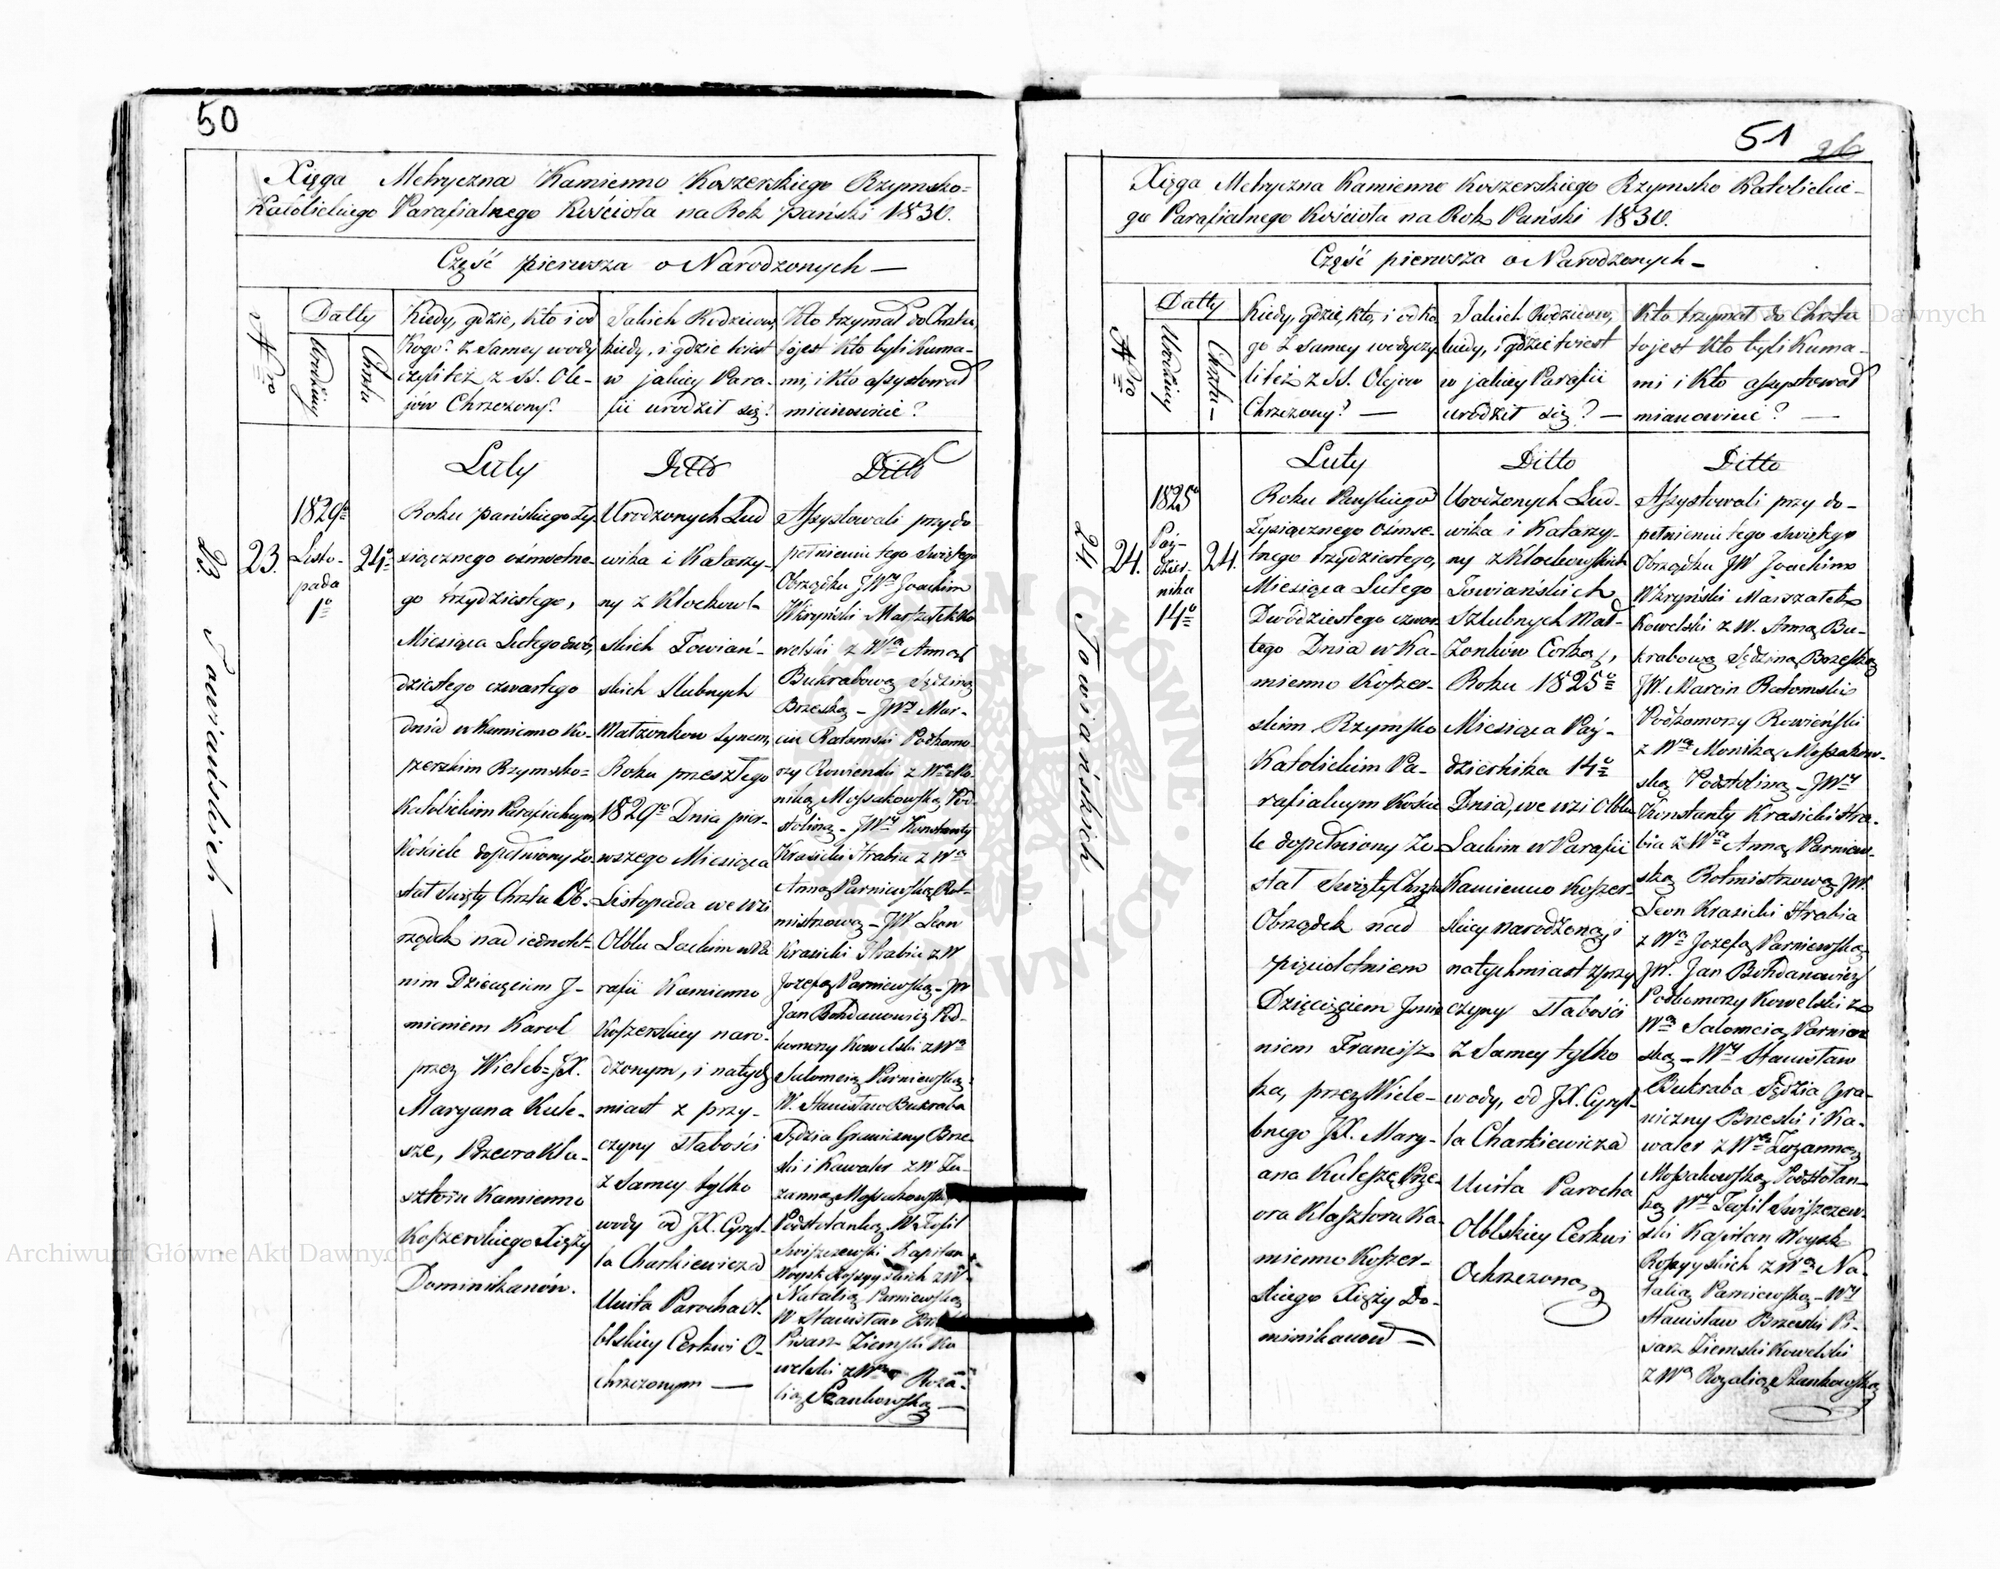 50
Xięga Metryczna Kamienno Koszerskiego Rzymsko=
Katolickiego Parafialnego Kościoła na Rok pański 1830.
Część pierwsza o Narodzonych —
Nro
Datty
Urodziny
Chrztu
Kiedy, gdzie, kto i od
Kogo? z samey wody
czyli też z SS. Ole-
jów Chrzczony?
Jakich Rodziców,
kiedy, i gdzie iest
w jakiey Para-
fii urodził się?
Kto trzymał do Chrztu,
to jest kto byli Kuma-
mi, i kto assystował
mianowicie?
23. Towiańskich —
23.
1829o
Listo-
pada
1o
24o
Luty
Roku pańskiego Ty-
siącznego osmsetne-
go trzydziestego,
Miesiąca Lutego dwó-
dziestego czwartego
dnia w Kamienno Ko-
szerskim Rzymsko=
Katolickim Parafialnym
Kościele dopełniony zo-
stał święty Chrztu Ob-
rządek nad iednolet-
nim Dziecięciem J-
mieniem Karol
przez Wieleb= JX.
Maryana Kule-
szę, Przeora Kla-
sztoru Kamienno
Koszerskiego Xięży
Dominikanów.
Ditto
Urodzonych Lud
wika i Katarzy-
ny z Kłochow-
skich Towiań-
skich Slubnych
Małżonkow synem,
Roku przeszłego
1829o Dnia pier-
wszego Miesiąca
Listopada we wsi
Olblu Lackim w Pa
rafii Kamienno
Koszerskiey naro-
dzonym, i natych
miast z przy-
czyny słabości
z samey tylko
wody od JX. Cyryl-
la Charkiewicza
Unita Parocha Ol-
blskiey Cerkwi O-
chrzczonym —
Ditto
Assystowali przy do
pełnieniu tego świętego
Obrządku JWy Joachim
Wkryński Marszałek Ko
welski z Wą Anną
Bukrabową Sędziną
Brzeską — JWy Mar-
cin Ratomski Podkomo
rzy Rowienski z Wą Mo-
niką Mossakowską Pod-
stoliną — JWy Konstanty
Krasicki Hrabia z Wą
Anną Parniewską Rot-
mistrzową — JW Leon
Krasicki Hrabia z W
Jozefą Parniewską — JW
Jan Bohdanowicz Pod-
komorzy Kowelski z Wą
Salomeią Parniewską
W. Stanisław Bukraba
Sędzia Graniczny Brze-
ski i Kawaler z W Zu-
zanną Mossakowską
Podstolanką W Teofil
Swiszczewski Kapitan
Woysk Rossyyskich z W
Natalią Parniewską
W Stanisław
Pisarz Ziemski Ko
welski z Wą Roza-
lią Szankowską —
51
26
Xięga Metryczna Kamienno Koszerskiego Rzymsko Katolickie-
go Parafialnego Kościoła na Rok Pański 1830.
Część pierwsza o Narodzonych —
Nro
Datty
Urodziny
Chrztu —
Kiedy, gdzie, kto, i od ko
go z samey wody czy-
li też z SS. Olejow
Chrzczony? —
Jakich Rodziców,
kiedy, i gdzie iest
w jakiey Parafii
urodził się? —
Kto trzymał do Chrztu
to jest kto byli Kuma-
mi i kto assystował
mianowicie? —
24. Towiańskich —
24.
1825o
Paź-
dzier-
nika
14o
24.
Luty
Roku Pańskiego
Tysiącznego osmse-
tnego trzydziestego,
Miesiąca Lutego
Dwódziestego czwar
tego Dnia w Ka-
mienno Koszer-
skim Rzymsko
Katolickim Pa-
rafialnym Koście
le dopełniony zo-
stał święty Chrztu
Obrządek nad
pięcioletniem
Dziecięciem Jmie
niem Francisz
ka, przez Wiele-
bnego JX. Mary-
ana Kuleszę Prze-
ora Klasztoru Ka-
mienno Koszer-
skiego Xięży Do-
minikanow —
Ditto
Urodzonych Lud-
wika i Katarzy-
ny z Kłochowskich
Towiańskich
Szlubnych Mał-
żonków Corką,
Roku 1825o
Miesiąca Paź-
dziernika 14o
Dnia, we wsi Olblu
Lackim w Parafii
Kamienno Koszer-
skiey narodzoną, i
natychmiast z przy
czyny słabości
z samey tylko
wody, od JX. Cyryl-
la Charkiewicza
Unita Parocha
Olblskiey Cerkwi
Ochrzczoną
Ditto
Assystowali przy do-
pełnieniu tego świętego
Obrządku JW Joachim
Wkryński Marszałek
Kowelski z W. Anną Bu-
krabową Sędziną Brzeską
JW. Marcin Ratomski
Podkomorzy Rowieński
z Wą Moniką Mossakow-
ską Podstoliną — JWy
Konstanty Krasicki Hra-
bia z Wą Anną Parniew-
ską Rotmistrzową JW.
Leon Krasicki Hrabia
z Wą Jozefą Parniewską
JW. Jan Bohdanowicz
Podkomorzy Kowelski z
Wą Salomeią Parniew
ską — Wy Stanisław
Bukraba Sędzia Gra-
niczny Brzeski i Ka-
waler z Wą Zuzanną
Mossakowską Podstolan-
ką Wy Teofil Swiszczew-
ski Kapitan Woysk
Rossyyskich z Wą Na-
talią Parniewską — Wy
Stanisław Brzeski Pi-
sarz Ziemski Kowelski
z Wą Rozalią Szankowską
Archiwum Główne Akt Dawnych